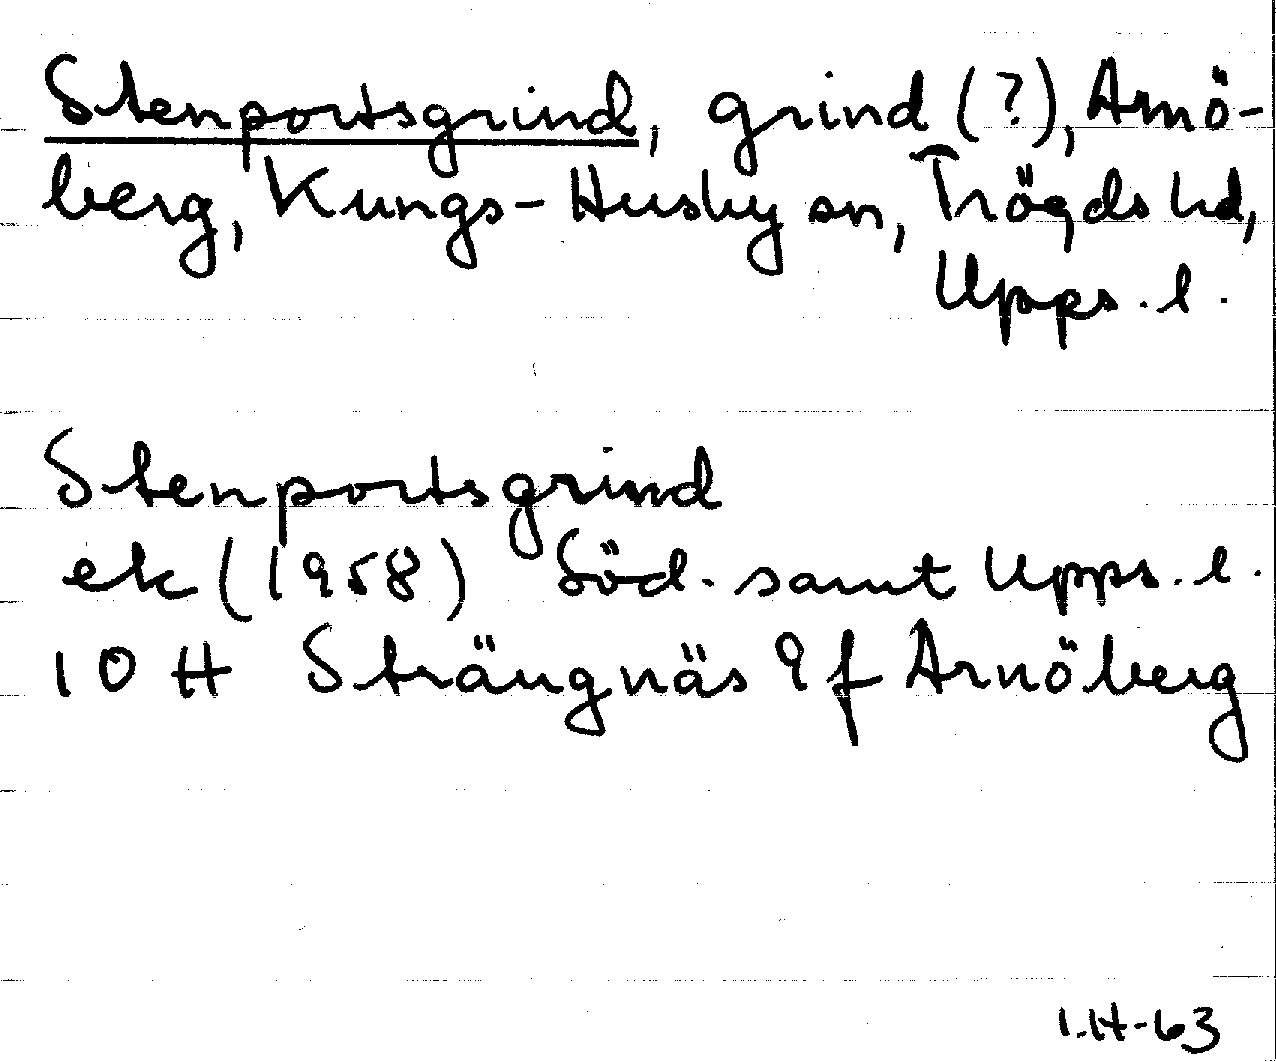 Stenportsgrind, grind (?), Arnö-
berg, Kungs-Husby sn, Trögds hd,
Upps. l.
Stenportsgrind
ek (1958) Söd. samt Upps. l.
10 H Strängnäs 9 f Arnöberg
I.H-63